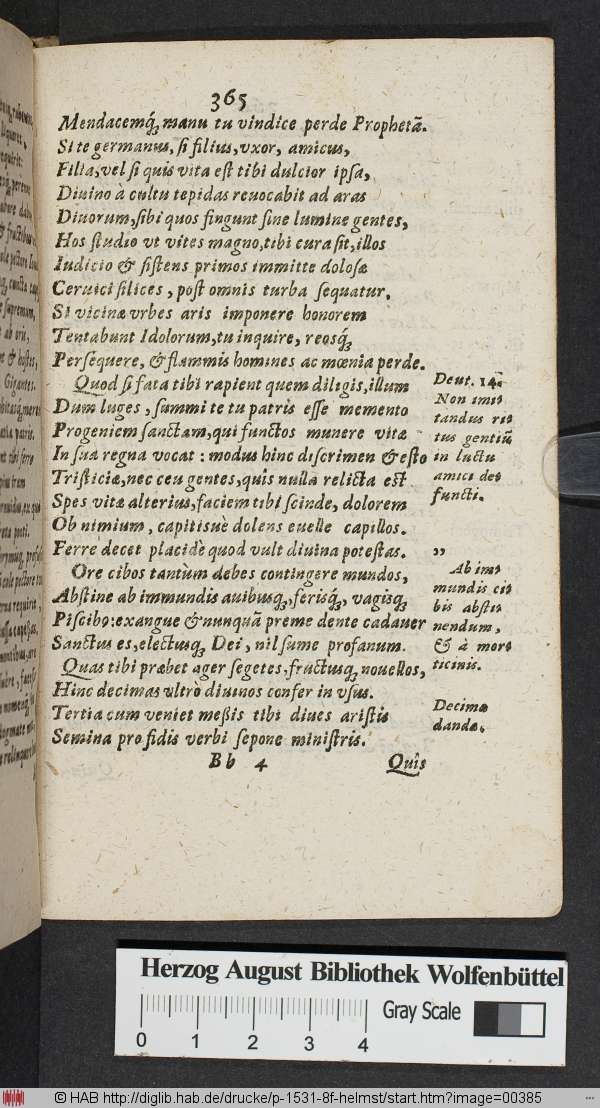 365
Mendacemq́; manu tu vindice perde Prophetã.
Si te germanus, si filius, vxor, amicus,
Filia, vel si quis vita est tibi dulcior ipsa,
Diuino à cultu tepidas reuocabit ad aras
Diuorum, sibi quos fingunt sine lumine gentes,
Hos studio vt vites magno, tibi cura sit, illos
Iudicio & sistens primos immitte dolosæ
Ceruici silices, post omnis turba sequatur.
Si vicinæ vrbes aris imponere honorem
Tentabunt Idolorum, tu inquire, reosq́;
Persequere, & flammis homines ac mœnia perde.
Quod si fata tibi rapient quem diligis, illum
Dum luges, summi te tu patris esse memento
Progeniem sanctam, qui functos munere vitæ
In sua regna vocat: modus hinc discrimen & esto
Tristiciæ, nec ceu gentes, quis nulla relicta est
Spes vitæ alterius, faciem tibi scinde, dolorem
Ob nimium, capitisùe dolens euelle capillos.
Ferre decet placidè quod vult diuina potestas.
Ore cibos tantùm debes contingere mundos,
Abstine ab immundis auibusq́;, ferisq́;, vagisq́;
Piscibꝰ: exangue & nunquã preme dente cadauer
Sanctus es, electusq́; Dei, nil sume profanum.
Quas tibi præbet ager segetes, fructusq́; nouellos,
Hinc decimas vltrò diuinos confer in vsus.
Tertia cum veniet meßis tibi diues aristis
Semina pro fidis verbi sepone ministris.
Bb 4 Quis
Deut. 14.
Non imi-
tandus ri-
tus gentiũ
in luctu
amici de-
functi.
„
Ab im-
mundis ci-
bis absti-
nendum,
& à mor-
ticinis.
Decimæ
dandæ.
Herzog August Bibliothek Wolfenbüttel
Gray Scale
0 1 2 3 4
© HAB http://diglib.hab.de/drucke/p-1531-8f-helmst/start.htm?image=00385